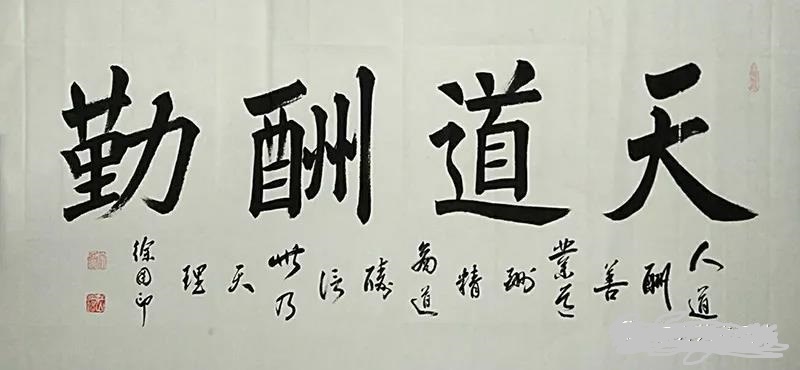 天道酬勤
人道酬善業道酬精商道酬信此乃天理
徐国印